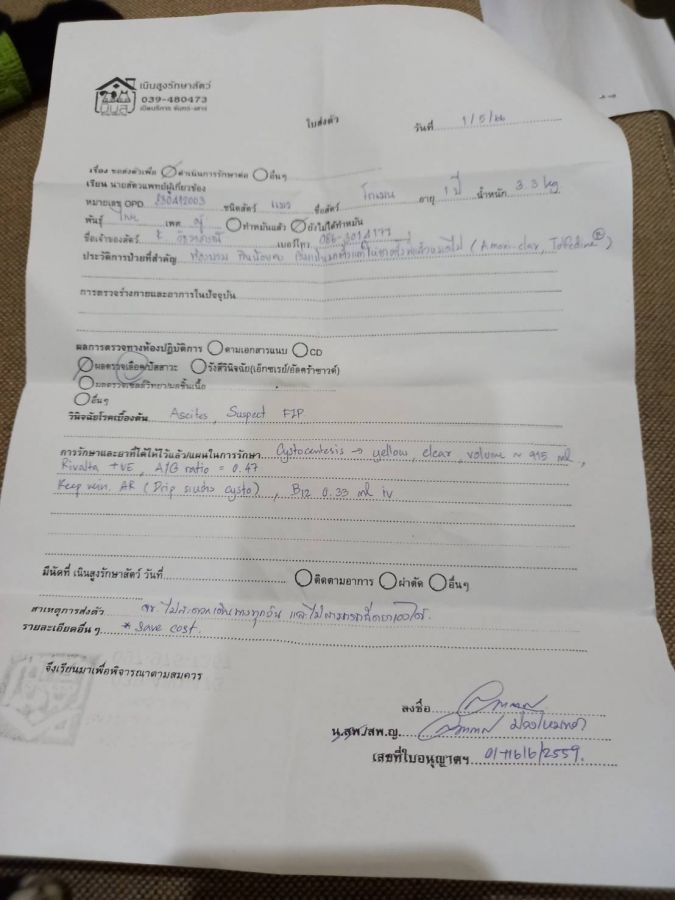 เนินสูงรักษาสัตว์
039-480473
เปิดบริการ จันทร์-เสาร์
ใบส่งตัว
วันที่ 1/5/66
เรื่อง ขอส่งตัวเพื่อ ดำเนินการรักษาต่อ อื่นๆ
เรียน นายสัตวแพทย์ผู้เกี่ยวข้อง
หมายเลข OPD ชนิดสัตว์ แมว ชื่อสัตว์ อายุ 1 ปี น้ำหนัก 3.3 kg
พันธุ์ ไทย เพศ ผู้ ทำหมันแล้ว ยังไม่ได้ทำหมัน
ชื่อเจ้าของสัตว์ เบอร์โทร
ประวัติการป่วยที่สำคัญ ท้องบวม กินน้อยลง (Amoxi-clav, Tolfedine®)
การตรวจร่างกายและอาการในปัจจุบัน
ผลการตรวจทางห้องปฏิบัติการ ตามเอกสารแนบ CD
ผลตรวจเลือด/ปัสสาวะ รังสีวินิจฉัย(เอ็กซเรย์/อัลตร้าซาวด์)
ผลตรวจเซลล์วิทยา/ผลชิ้นเนื้อ
อื่นๆ
วินิจฉัยโรคเบื้องต้น Ascites, Suspect FIP
การรักษาและยาที่ได้ให้ไว้แล้ว/แผนในการรักษา Cystocentesis → yellow, clear, volume ≈ 915 ml,
Rivalta +VE, A/G ratio = 0.47
Keep vein, AR (Drip cysto), B12 0.33 ml iv
มีนัดที่ เนินสูงรักษาสัตว์ วันที่ ติดตามอาการ ผ่าตัด อื่นๆ
สาเหตุการส่งตัว ไม่สะดวกเดินทางทุกวัน และไม่สามารถฉีดยาเองได้
รายละเอียดอื่นๆ * save cost.
จึงเรียนมาเพื่อพิจารณาตามสมควร
ลงชื่อ
น.สพ./สพ.ญ.
เลขที่ใบอนุญาตฯ